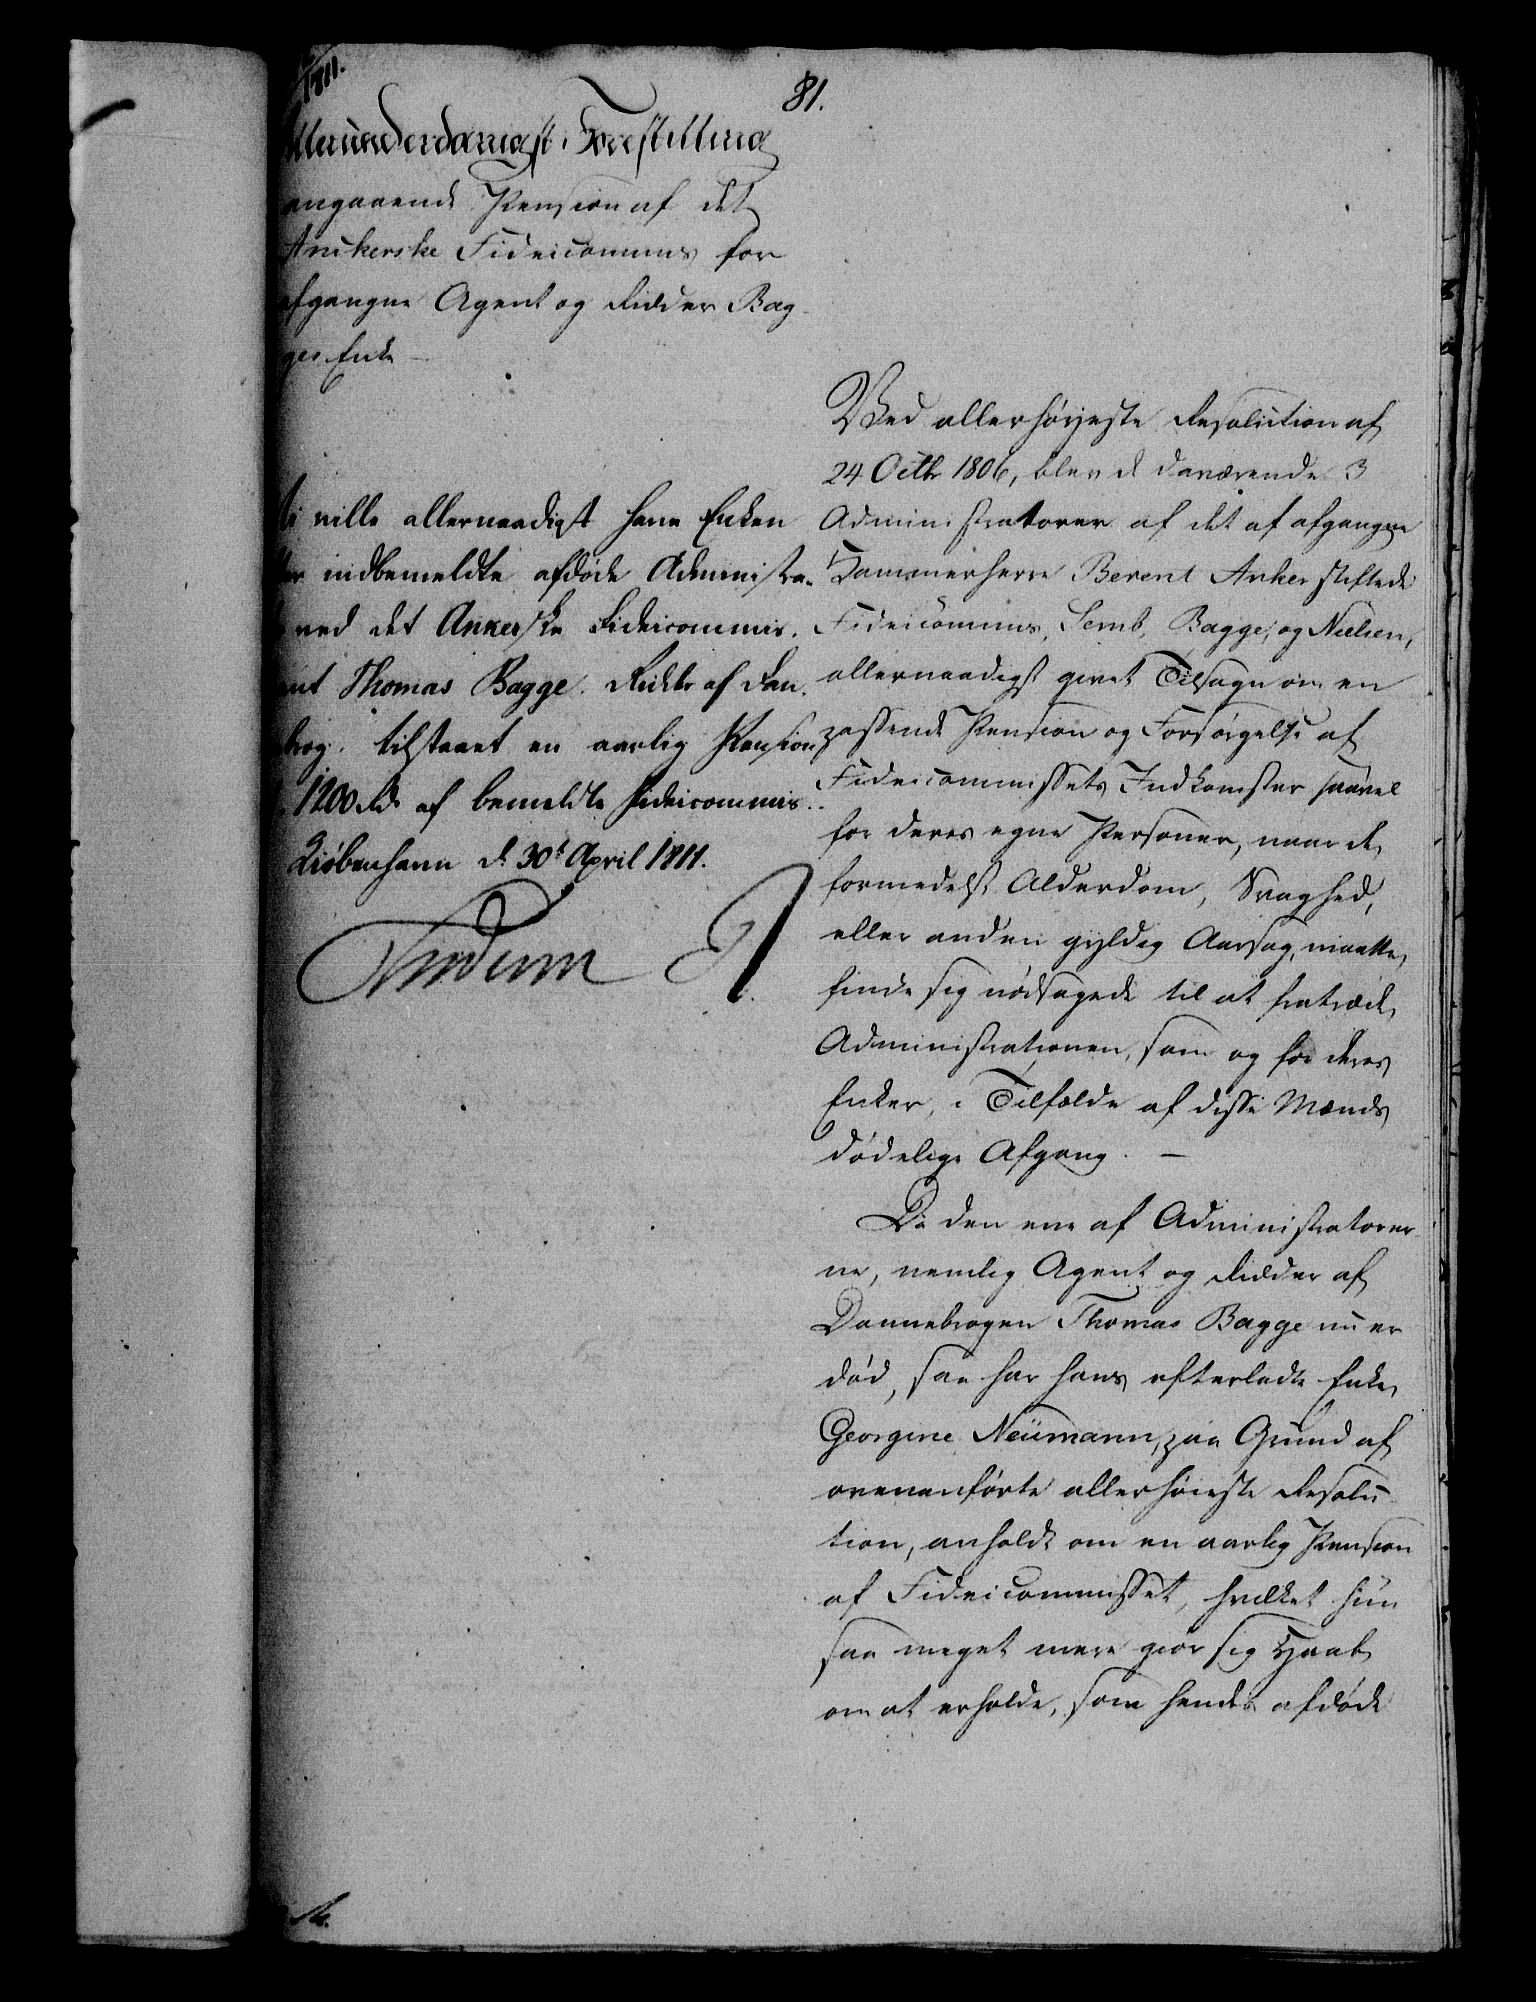 1811.
81.
Allerunderdanigst Forestilling
angaaende Pension af det
Ankerske Fideicommis for
afgangne Agent og Ridder Bag-
ges Enke —
Vi ville allernaadigst have Enken
efter indbemeldte afdøde Administra-
ved det Ankerske Fideicommis.
Agent Thomas Bagge. Ridder af Dan.
brog. tilstaaet en aarlig Pension
1200 Rd af bemeldte Fideicommis.
Kiøbenhavn d. 30t April 1811.
Frederik R
Ved allerhøyeste Resolution af
24 Octbr 1806, blev de daværende 3
Administratorer af det af afgangne
Kammerherre Berent Anker stiftede
Fideicommis, Semb, Bagge, og Nielsen,
allernaadigst givet Tilsagn om en
passende Pension og Forsørgelse af
Fideicommissets Indkomster saavel
for deres egne Personer, naar de
formedelst Alderdom, Svaghed,
eller anden gyldig Aarsag, maatte
finde sig nødsagede til at fratræde
Administrationen, som og for deres
Enker, i Tilfælde af disse Mænds
dødelige Afgang. —
Da den ene af Administratorer-
ne, nemlig Agent og Ridder af
Dannebrogen Thomas Bagge nu er
død, saa har hans efterladte Enke
Georgine Neumann, paa Grund af
ovenanførte allerhøieste Resolu-
tion, anholdt om en aarlig Pension
af Fideicommisset, hvilket hun
saa meget mere giør sig Haab
om at erholde, som hendes afdøde